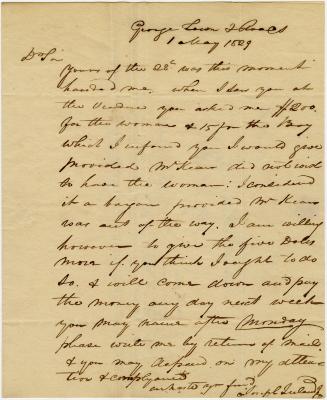 George Town X Roads
1 May 1829
D Sir
Yours of the 22d was this moment
handed me, when I saw you at
the Vendue you asked me $200
for the woman & 15 for the Boy
which I informed you I would give
provided Mr did not wish
to have the woman: I considered
it a bargon provided Mr
was out of the way. I am willing
however to give the five Dolrs
more if you think I ought to do
so. & will come down and pay
the money any day next week
you may name after Monday
please write me by return of mail
& you may depend on my atten
tion & complyance
Joseph Ireland